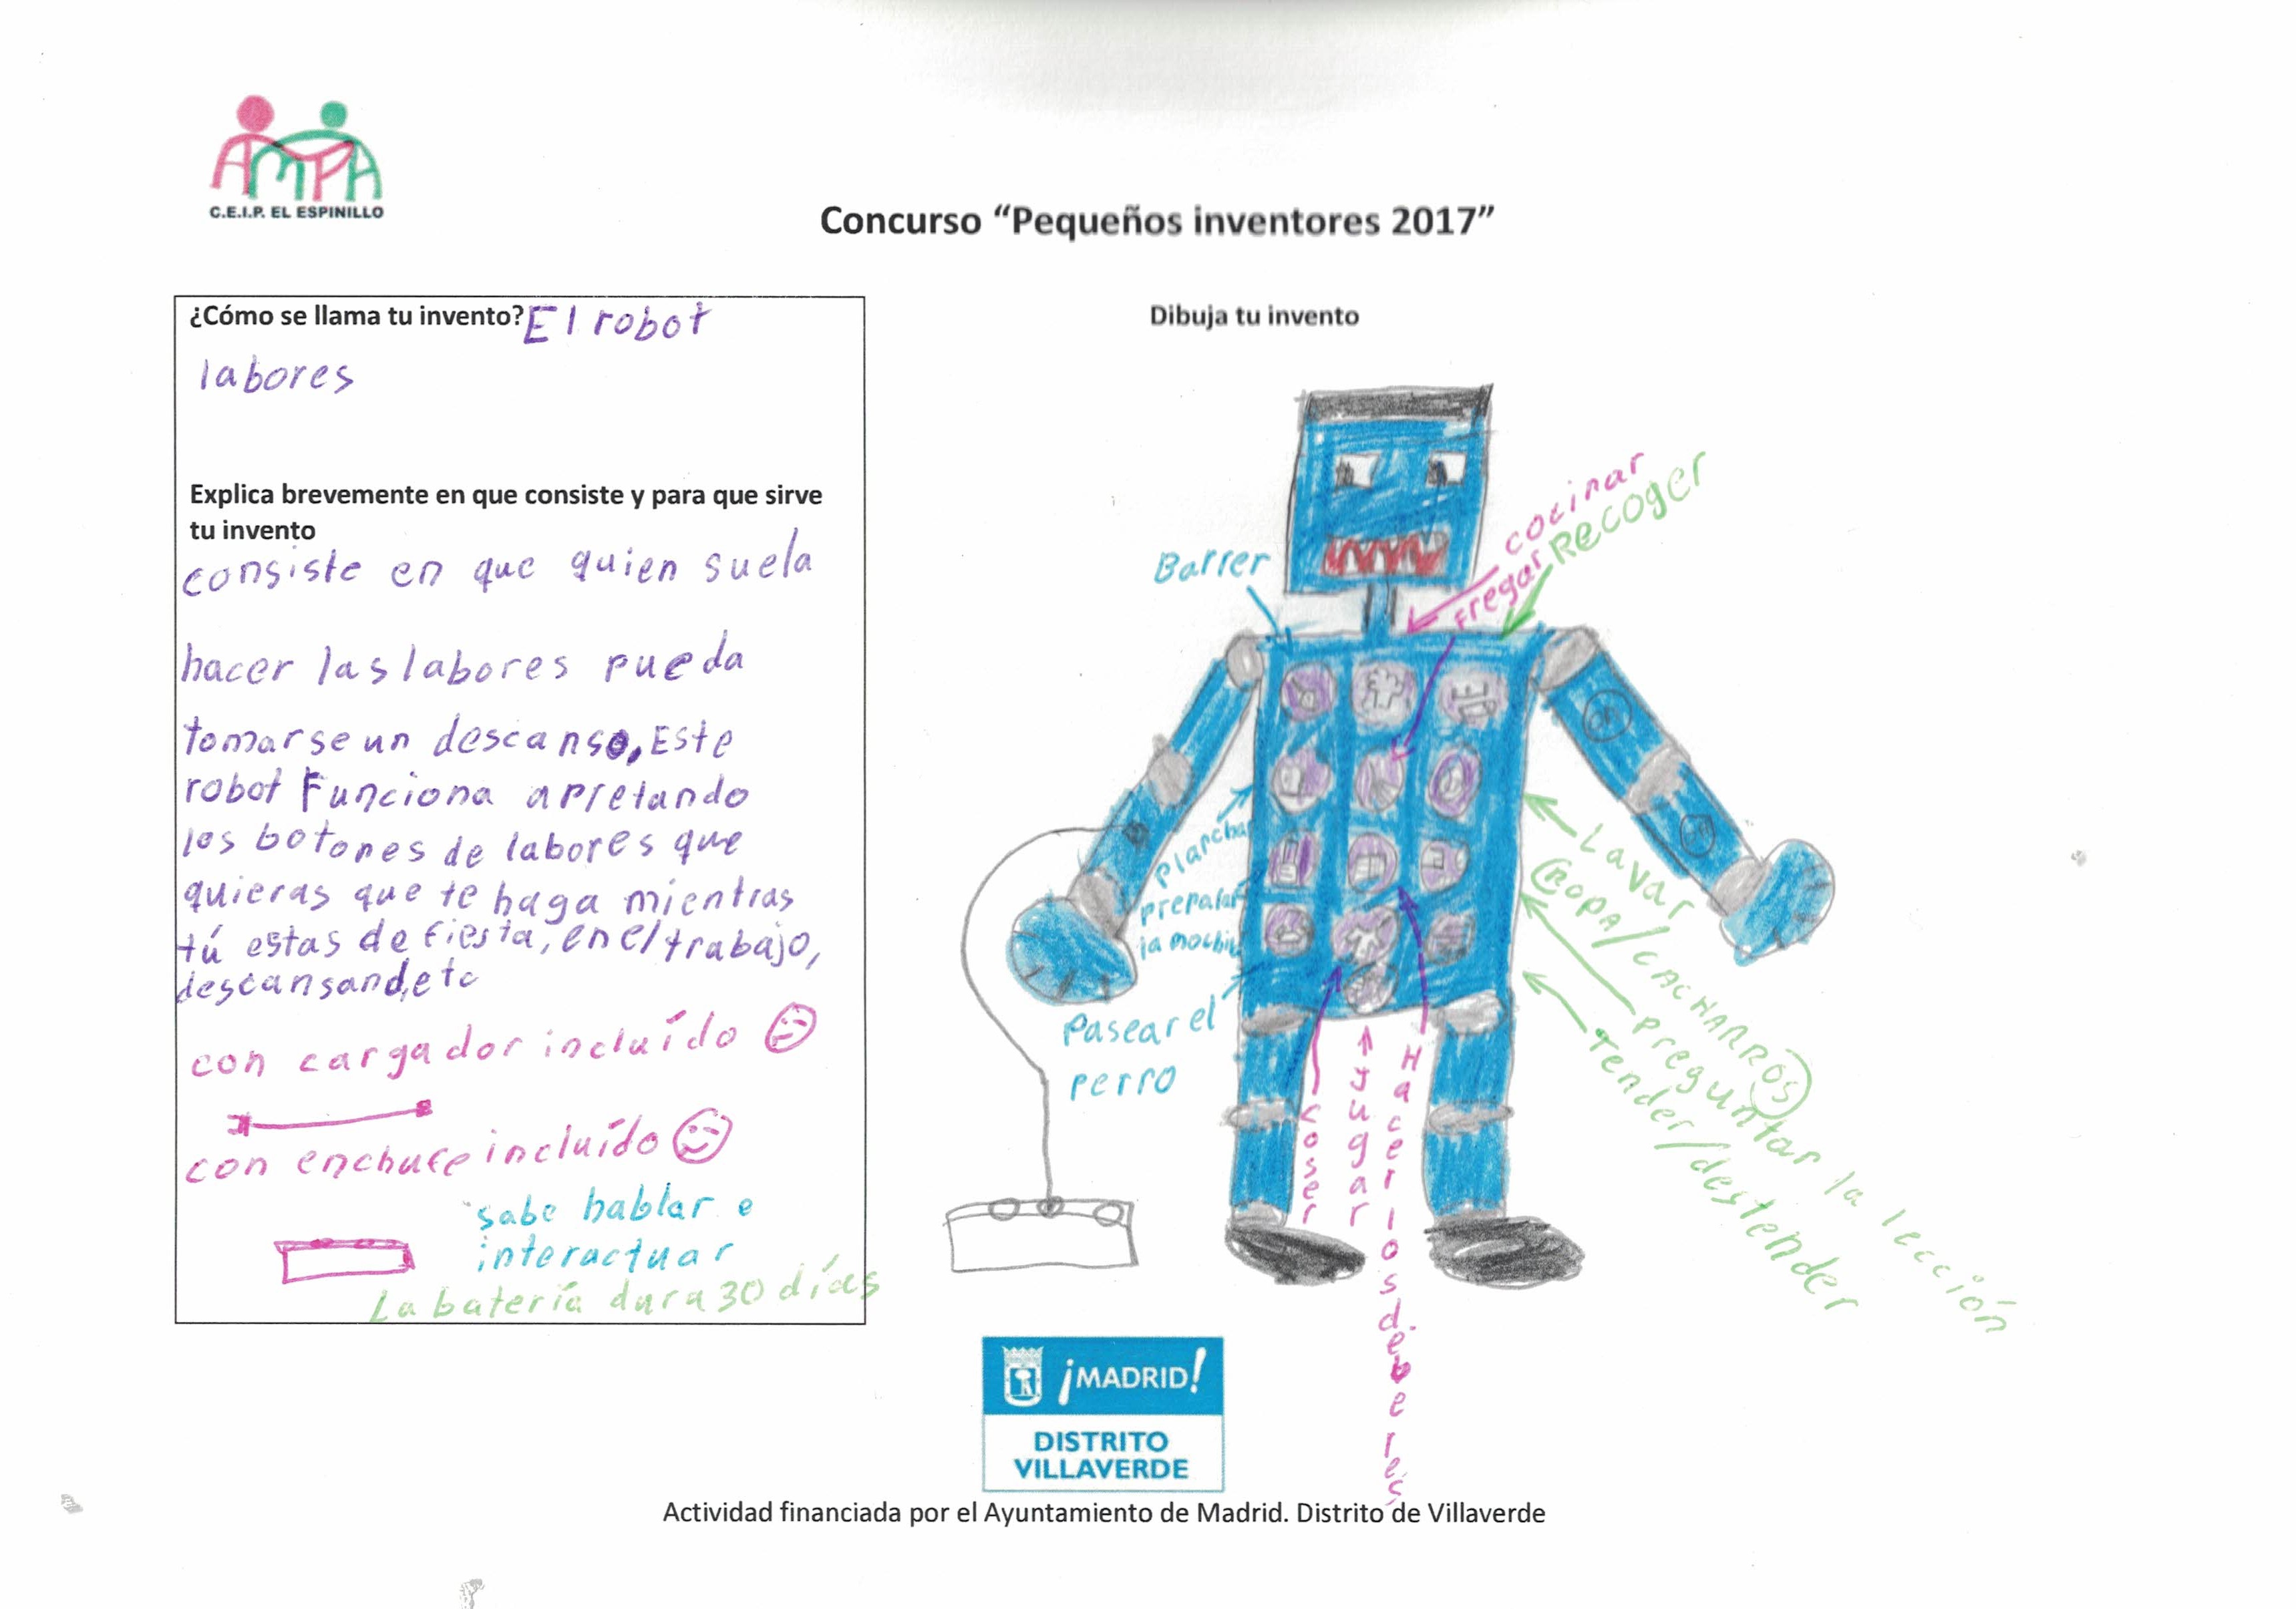 AMPA
C.E.I.P. EL ESPINILLO
Concurso “Pequeños inventores 2017”
¿Cómo se llama tu invento? El robot
labores
Explica brevemente en que consiste y para que sirve
tu invento
consiste en que quien suela
hacer las labores pueda
tomarse un descanso, Este
robot Funciona apretando
los botones de labores que
quieras que te haga mientras
tú estas de fiesta, en el trabajo,
descansand,etc
con cargador incluído
con enchufe incluído
sabe hablar e
interactuar
La batería dura 30 días
Dibuja tu invento
cocinar
Recoger
Fregar
Barrer
Planchar
preparar
la mochila
Pasear el
perro
coser
Jugar
Hacer los deberes
Lavar
(ROPA/CACHARROS)
preguntar la lección
Tender/destender
¡MADRID!
DISTRITO
VILLAVERDE
Actividad financiada por el Ayuntamiento de Madrid. Distrito de Villaverde